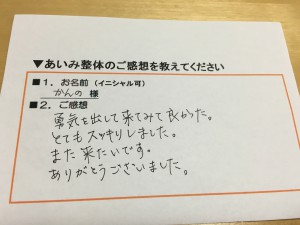 ▼あいみ整体のご感想を教えてください
■1．お名前（イニシャル可）
かんの 様
■2．ご感想
勇気を出して来てみて良かった。
とてもスッキリしました。
また来たいです。
ありがとうございました。